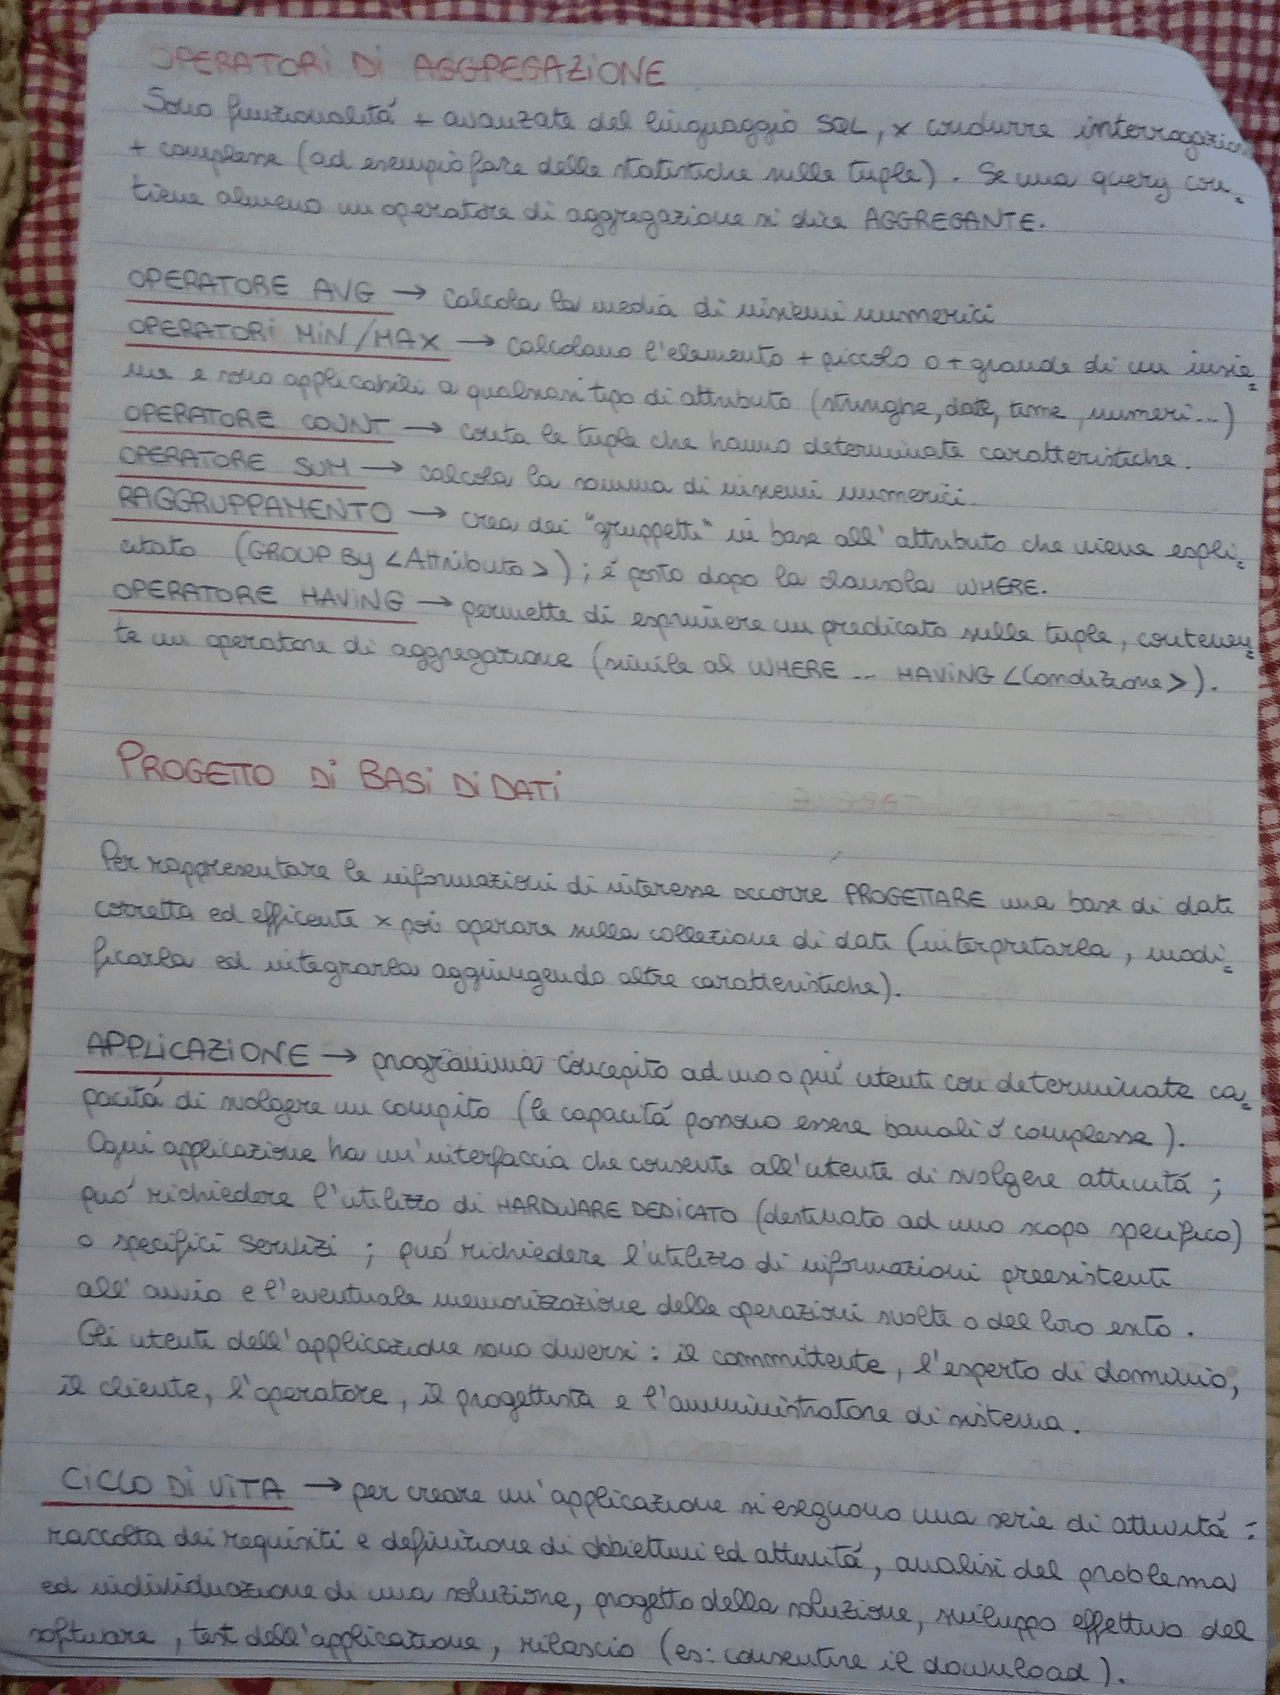 OPERATORI DI AGGREGAZIONE
Sono funzionalitá + avanzate del linguaggio SQL, x condurre interrogazioni
+ complesse (ad esempio fare delle statistiche sulle tuple). Se una query con=
tiene almeno un operatore di aggregazione si dice AGGREGANTE.
OPERATORE AVG → calcola la media di insiemi numerici
OPERATORI MIN/MAX → calcolano l'elemento + piccolo o + grande di un insie=
me e sono applicabili a qualsiasi tipo di attributo (stringhe, date, time, numeri...)
OPERATORE COUNT → conta le tuple che hanno determinate caratteristiche.
OPERATORE SUM → calcola la somma di insiemi numerici.
RAGGRUPPAMENTO → crea dei "gruppetti" in base all'attributo che viene espli=
citato (GROUP By <Attributo>); é posto dopo la clausola WHERE.
OPERATORE HAVING → permette di esprimere un predicato sulle tuple, contenen=
te un operatore di aggregazione (simile al WHERE ... HAVING <Condizione>).
PROGETTO DI BASI DI DATI
Per rappresentare le informazioni di interesse occorre PROGETTARE una base di dati
corretta ed efficente x poi operare sulla collezione di dati (interpretarla, modi=
ficarla ed integrarla aggiungendo altre caratteristiche).
APPLICAZIONE → programma concepito ad uno o piú utenti con determinate ca=
pacitá di svolgere un compito (le capacitá possono essere banali o complesse).
Ogni applicazione ha un'interfaccia che consente all'utente di svolgere attivitá ;
puó richiedere l'utilizzo di HARDWARE DEDICATO (destinato ad uno scopo specifico)
o specifici servizi ; puó richiedere l'utilizzo di informazioni preesistenti
all'avvio e l'eventuale memorizzazione delle operazioni svolte o del loro esito.
Gli utenti dell'applicazione sono diversi: il committente, l'esperto di dominio,
il cliente, l'operatore, il progettista e l'amministratore di sistema.
CICLO DI VITA → per creare un'applicazione si eseguono una serie di attivitá :
raccolta dei requisiti e definizione di obbiettivi ed attivitá, analisi del problema
ed individuazione di una soluzione, progetto della soluzione, sviluppo effettivo del
software, test dell'applicazione, rilascio (es: consentire il download).